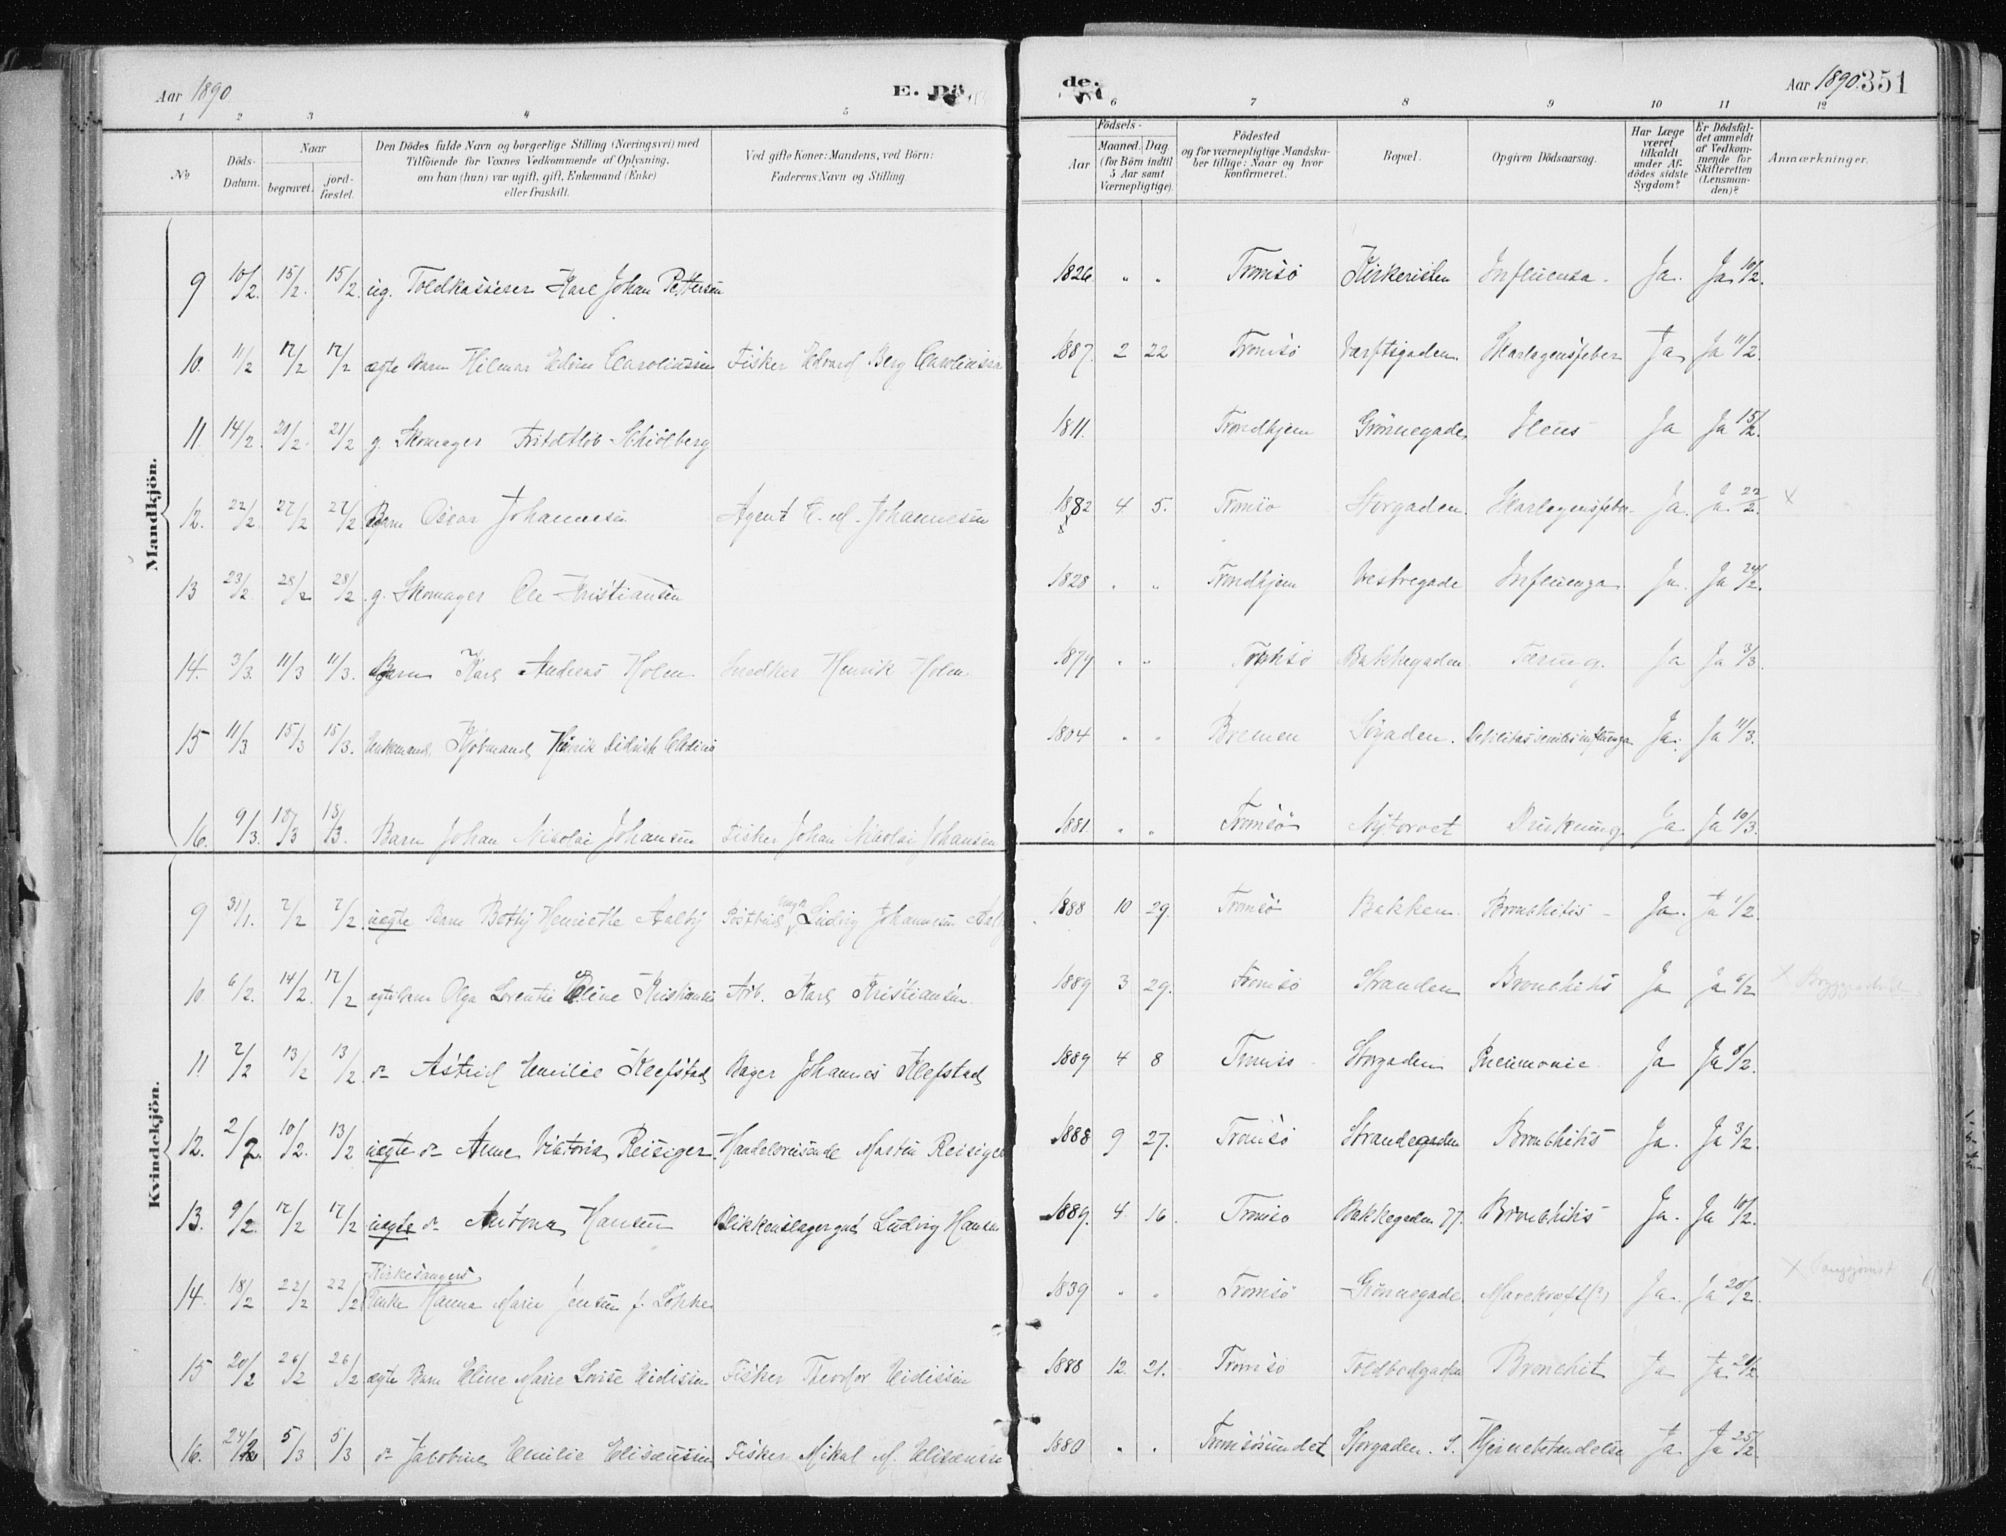 Aar 1890
E. Dö
de.
Aar 1890. 351
1 2 3 4 5 6 7 8 9 10 11 12
No
Döds-Datum.
Naar
begravet. jord-fæstet.
Den Dödes fulde Navn og borgerlige Stilling (Næringsvei) med
Tilföiende for Voxnes Vedkommende af Oplysning,
om han (hun) var ugift, gift, Enkemand (Enke)
eller fraskilt.
Ved gifte Koner: Mandens, ved Börn:
Faderens Navn og Stilling.
Födsels-
Aar Maaned. Dag.
(for Börn indtil 5 Aar samt Værnepligtige).
Födested
og for værnepligtige Mandska-
ber tillige: Naar og hvor
konfirmeret.
Bopæl.
Opgiven Dödsaarsag.
Har Læge været tilkaldt under Af-dödes sidste Sygdom?
Er Dödsfal-det anmeldt af Vedkom-mende for Skifteretten (Lensman-den)?
Anmærkninger.
Mandkjön.
9 10/2. 15/2. 15/2. ug. Toldkasserer Karl Johan Pettersen 1826. " " Tromsö Kirkeristen Influensa. Ja. Ja 10/2.
10. 11/2 17/2 17/2 ægte Barn Hilmar Edvin Caroliussen Fisker Edvard Berg Caroliussen 1887. 2 22 Tromsö Værftsgaden. Skarlagensfeber Ja Ja 11/2.
11. 14/2. 21/2. 21/2 g. Skomager Fritdtlob Schiölberg 1811. Trondhjem Grönnegade. Ileus Ja Ja 15/2.
12. 22/2. 27/2 27/2 Barn Oscar Johannesen Agent E. M. Johannesen 1882 4 5. Tromsö Storgaden. Skarlagensfeber Ja. Ja. 22/2. x
13 23/2. 28/2 28/2 g. Skomager Ole Kristiansen 1828 " " Trondhjem Vestregade Influenza Ja. Ja 24/2.
14. 3/3. 11/3 11/3. Barn Karl Andreas Holm Snedker Henrik Holm 1879 " " Tromsö Bakkegaden. Tæring. Ja Ja 3/3.
15 11/3 15/3 15/3. Enkemand Kjöbmand Henrik Didrik 1804 " " Bremen Sögaden. Debilitas senilis influenza Ja. Ja 11/3.
16. 9/3. 18/3 18/3. Barn Johan Nikolai Johansen Fisker Johan Nikolai Johansen 1881. " " Tromsö Nytorvet Drukning. Ja Ja 10/3.
Kvindekjön.
9 31/1. 7/2 7/2. uægte Barn Betty Henriette Aalby Postbud Ludvig Johannesen 1888 10 29. Tromsö Bakken. Bronkhitis Ja. Ja 1/2
10. 6/2. 14/2. 17/2 ægte Barn Olga Lorentze Eline Kristiansen Arb. Karl Kristiansen. 1889 3 29. Tromsö Stranden Bronchitis Ja Ja 6/2 x
11 7/2 13/2 13/2 do Astrid Emilie Klefstad Bager Johannes Klefstad 1889 4 8 Tromsö Storgaden Pneumonie Ja Ja 8/2.
12. 2/2. 10/2. 13/2 uægte do Anne Viktoria Reisiger Handelsreisende Martin Reisiger 1888 9 27. Tromsö Strandegaden Bronkhitis Ja. Ja 3/2.
13. 9/2. 17/2 17/2 uægte do Antona Hansen Blikkenslagersvd Ludvig Hansen 1889. 4. 16. Tromsö Bakkegaden 77. Bronkhitis Ja. Ja 10/2.
14. 18/2 22/2 22/2 Kirkesangers Enke Hanna Marie Jensen f. Lökke 1839 " " Tromsö Grönnegade. Mavekræft(?) Ja. Ja 20/2. x
15 20/2 26/2 26/2 ægte Barn Eline Marie Lovise Eidissen Fisker Theodor Eidissen 1888 12. 21. Tromsö Toldbodgaden Bronchit Ja Ja 21/2
16. 24/2 5/3 5/3 do Jacobine Emilie Elisæussen Fisker Mikal M. Elisæussen 1880 " " Tromsösundet Storgaden. S. Hjernebetændelse Ja Ja 25/2.